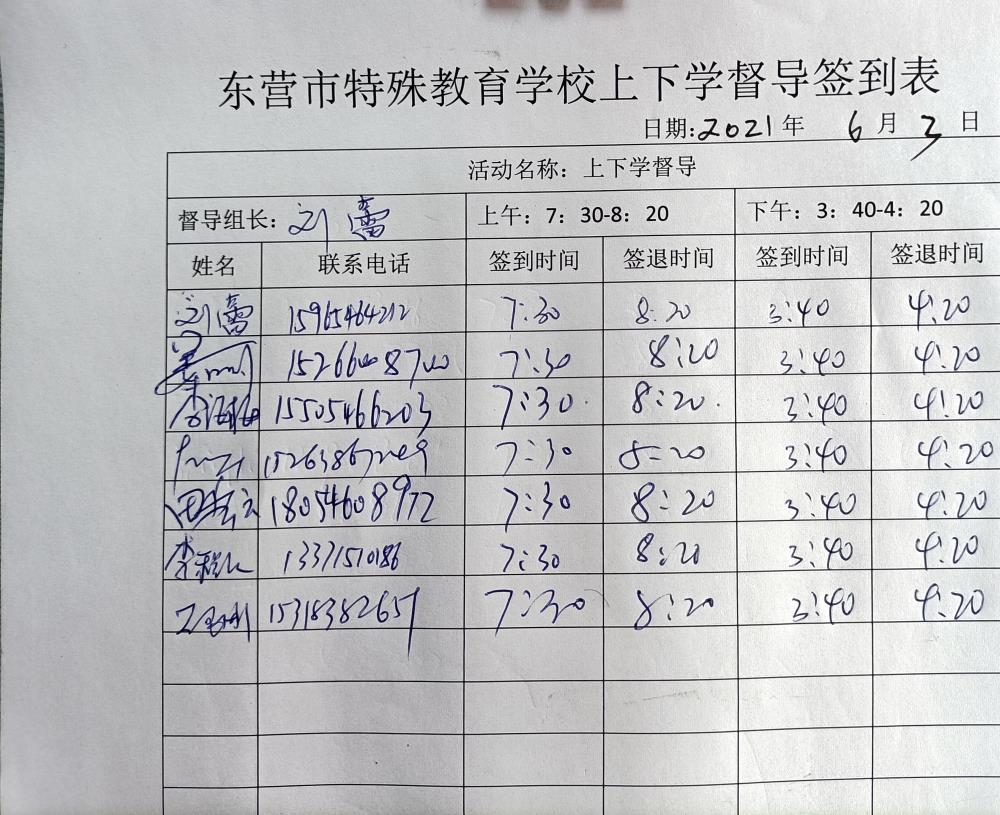 东营市特殊教育学校上下学督导签到表
日期:2021年 6月3日
活动名称：上下学督导
督导组长：刘蕾 上午：7：30-8：20 下午：3：40-4：20
姓名 联系电话 签到时间 签退时间 签到时间 签退时间
刘蕾 15965464212 7:30 8:20 3:40 4:20
7:30 8:20 3:40 4:20
15505466203 7:30 8:20 3:40 4:20
7:30 8:20 3:40 4:20
18054608972 7:30 8:20 3:40 4:20
13371510186 7:30 8:20 3:40 4:20
15318382657 7:30 8:20 3:40 4:20